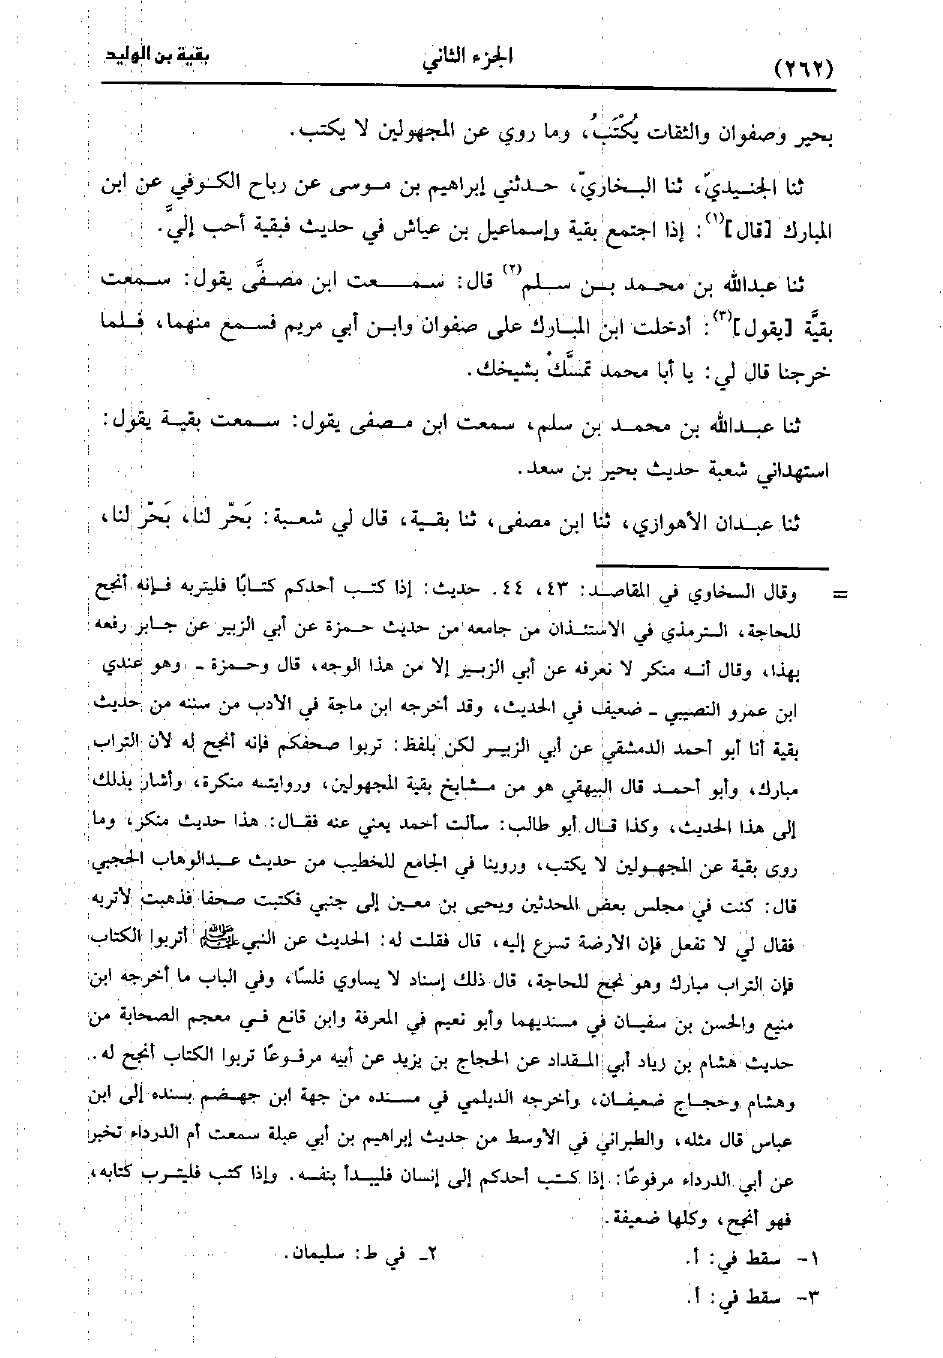 (٢٦٢) الجزء الثاني بقية بن الوليد
بحير وصفوان والثقات يُكْتَبُ، وما روي عن المجهولين لا يكتب.
ثنا الجنيديّ، ثنا البخاريّ، حدثني إبراهيم بن موسى عن رباح الكوفي عن ابن
المبارك [قال](١): إذا اجتمع بقية وإسماعيل بن عياش في حديث فبقية أحب إليَّ.
ثنا عبدالله بن محمد بن سلم(٢) قال: سمعت ابن مصفَّى يقول: سمعت
بقيَّة [يقول](٣): أدخلت ابن المبارك على صفوان وابن أبي مريم فسمع منهما، فلما
خرجنا قال لي: يا أبا محمد تمسَّكْ بشيخك.
ثنا عبدالله بن محمد بن سلم، سمعت ابن مصفى يقول: سمعت بقية يقول:
استهداني شعبة حديث بحير بن سعد.
ثنا عبدان الأهوازي، ثنا ابن مصفى، ثنا بقية، قال لي شعبة: بَحّر لنا، بَحّر لنا،
= وقال السخاوي في المقاصد: ٤٣، ٤٤. حديث: إذا كتب أحدكم كتابًا فليتربه فإنه أنجح
للحاجة، الترمذي في الاستئذان من جامعه من حديث حمزة عن أبي الزبير عن جابر رفعه
بهذا، وقال أنه منكر لا نعرفه عن أبي الزبير إلا من هذا الوجه، قال وحمزة ـ وهو عندي
ابن عمرو النصيبي ـ ضعيف في الحديث، وقد أخرجه ابن ماجة في الأدب من سننه من حديث
بقية أنا أبو أحمد الدمشقي عن أبي الزبير لكن بلفظ: تربوا صحفكم فإنه أنجح له لأن التراب
مبارك، وأبو أحمد قال البيهقي هو من مشايخ بقية المجهولين، وروايته منكرة، وأشار بذلك
إلى هذا الحديث، وكذا قال أبو طالب: سألت أحمد يعني عنه فقال: هذا حديث منكر، وما
روى بقية عن المجهولين لا يكتب، وروينا في الجامع للخطيب من حديث عبدالوهاب الحجبي
قال: كنت في مجلس بعض المحدثين ويحيى بن معين إلى جنبي فكتبت صحفا فذهبت لأتربه
فقال لي لا تفعل فإن الأرضة تسرع إليه، قال فقلت له: الحديث عن النبي ﷺ أتربوا الكتاب
فإن التراب مبارك وهو نجح للحاجة، قال ذلك إسناد لا يساوي فلسًا، وفي الباب ما أخرجه ابن
منيع والحسن بن سفيان في مسنديهما وأبو نعيم في المعرفة وابن قانع في معجم الصحابة من
حديث هشام بن زياد أبي المقداد عن الحجاج بن يزيد عن أبيه مرفوعًا تربوا الكتاب أنجح له..
وهشام وحجاج ضعيفان، وأخرجه الديلمي في مسنده من جهة ابن جهضم بسنده إلى ابن
عباس قال مثله، والطبراني في الأوسط من حديث إبراهيم بن أبي عبلة سمعت أم الدرداء تخبر
عن أبي الدرداء مرفوعًا: إذا كتب أحدكم إلى إنسان فليبدأ بنفسه. وإذا كتب فليترب كتابه،
فهو أنجح، وكلها ضعيفة.
١- سقط في: أ. ٢- في ط: سليمان.
٣- سقط في: أ.